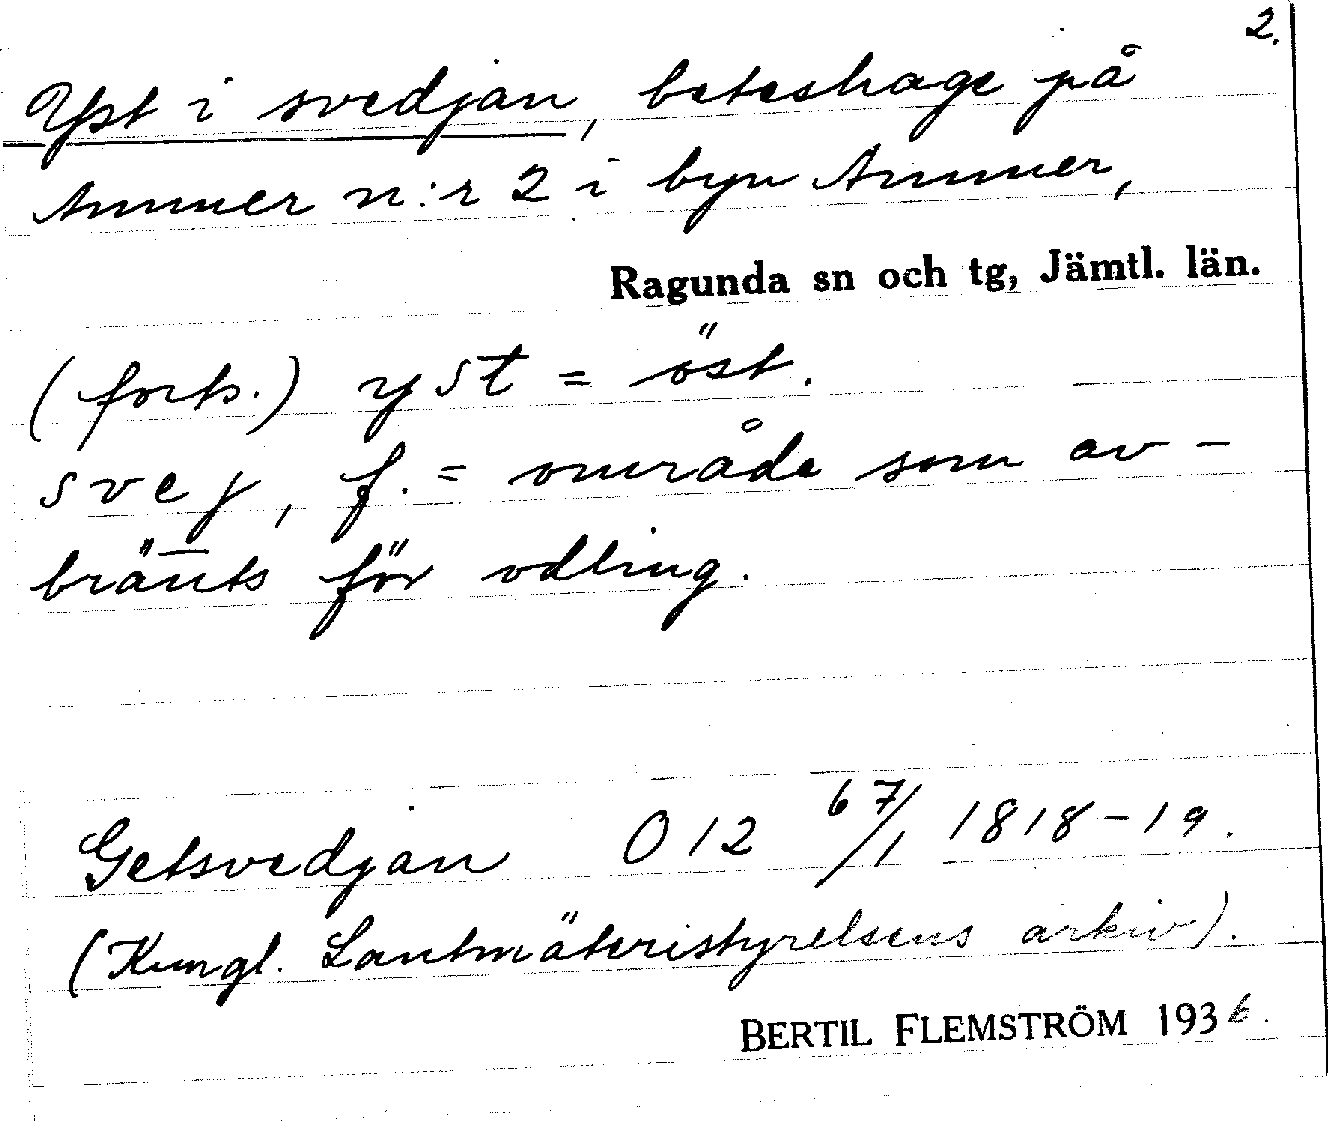 2.
Yst i svedjan, beteshage på
Ammer n:r 2 i byn Ammer,
Ragunda sn och tg, Jämtl. län.
(forts.) yst = öst.
svej, f. = område som av-
bränts för odling.
Getsvedjan O 12 67/1 1818-19.
(Kungl. Lantmäteristyrelsens arkiv).
BERTIL FLEMSTRÖM 1936.